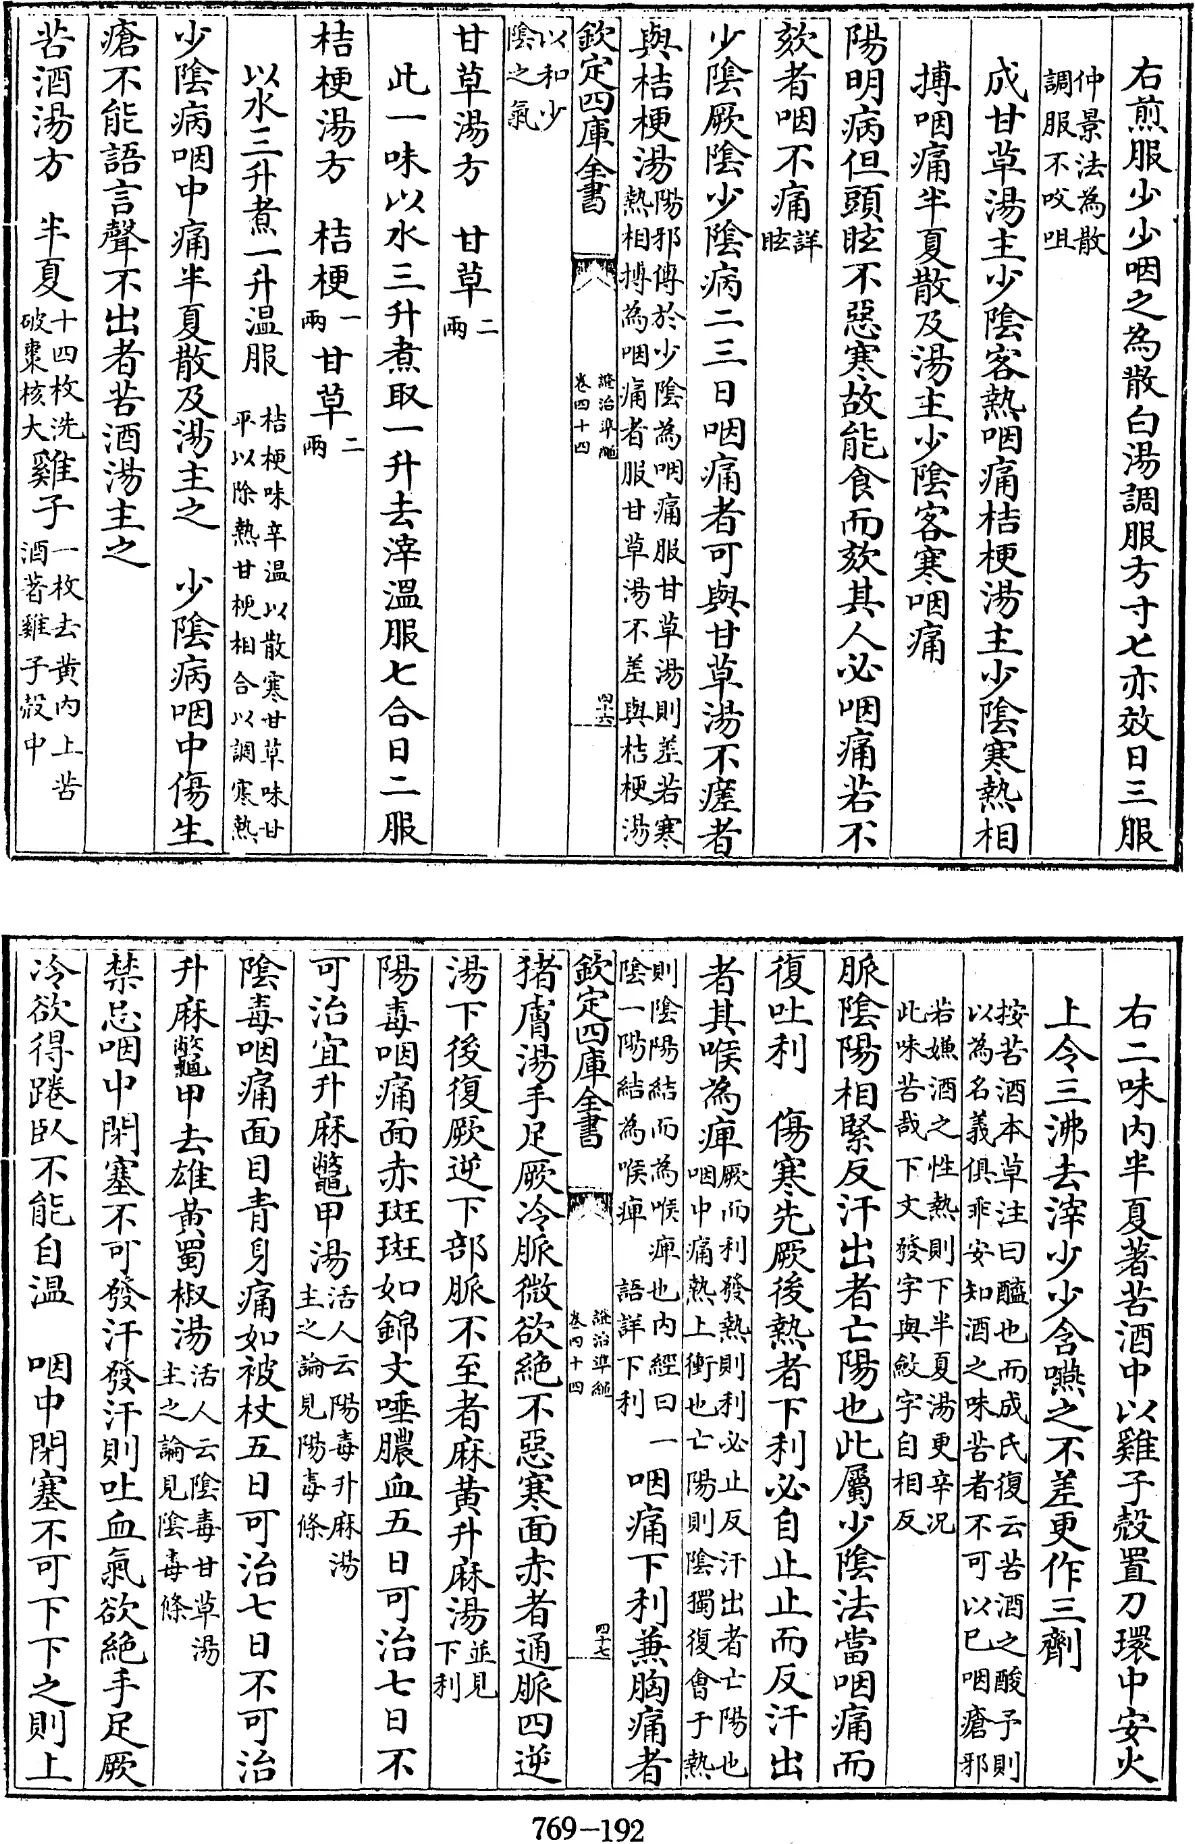 右煎服少少咽之為散白湯調服方寸七亦效日三服
仲景法為散
調服不㕮咀
成甘草湯主少陰客熱咽痛桔梗湯主少陰寒熱相
搏咽痛半夏散及湯主少陰客寒咽痛
陽明病但頭眩不惡寒故能食而欬其人必咽痛若不
欬者咽不痛詳
眩
少陰厥陰少陰病二三日咽痛者可與甘草湯不瘥者
與桔梗湯陽邪傳於少陰為咽痛服甘草湯則差若寒
熱相搏為咽痛者服甘草湯不差與桔梗湯
欽定四庫全書
證治準繩
卷四十四
四十六
以和少
陰之氣
甘草湯方 甘草二
兩
此一味以水三升煮取一升去滓溫服七合日二服
桔梗湯方 桔梗一
兩甘草二
兩
以水三升煮一升温服 桔梗味辛温以散寒甘草味甘
平以除熱甘梗相合以調寒熱
少陰病咽中痛半夏散及湯主之 少陰病咽中傷生
瘡不能語言聲不出者苦酒湯主之
苦酒湯方 半夏十四枚洗
破棗核大雞子一枚去黄内上苦
酒著雞子殻中
右二味内半夏著苦酒中以雞子殻置刀環中安火
上令三沸去滓少少含嚥之不差更作三劑
按苦酒本草注曰醯也而成氏復云苦酒之酸予則
以為名義俱乖安知酒之味苦者不可以已咽瘡邪
若嫌酒之性熱則下半夏湯更辛况
此味苦哉下文發字與斂字自相反
脈陰陽相緊反汗出者亡陽也此屬少陰法當咽痛而
復吐利 傷寒先厥後熱者下利必自止止而反汗出
者其喉為痺厥而利發熱則利必止反汗出者亡陽也
咽中痛熱上衝也亡陽則陰獨復會于熱
則陰陽結而為喉痺也内經曰一
陰一陽結為喉痺 語詳下利 咽痛下利兼胸痛者
欽定四庫全書
證治準繩
卷四十四
四十七
猪膚湯手足厥冷脈微欲絶不惡寒面赤者通脈四逆
湯下後復厥逆下部脈不至者麻黄升麻湯並見
下利
陽毒咽痛面赤斑斑如錦文唾膿血五日可治七日不
可治宜升麻鼈甲湯活人云陽毒升麻湯
主之論見陽毒條
陰毒咽痛面目青身痛如被杖五日可治七日不可治
升麻鼈甲去雄黄蜀椒湯活人云陰毒甘草湯
主之論見陰毒條
禁忌咽中閉塞不可發汗發汗則吐血氣欲絶手足厥
冷欲得踡臥不能自温 咽中閉塞不可下下之則上
769-192